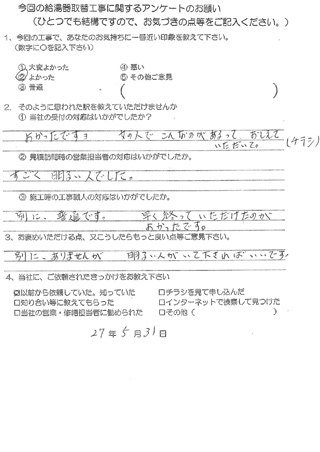 今回の給湯器取替工事に関するアンケートのお願い
（ひとつでも結構ですので、お気づきの点等をご記入ください。）
1、今回の工事で、あなたのお気持ちに一番近い印象を教えて下さい。
（数字に○を記入下さい）
①大変よかった ④悪い
②よかった ⑤その他ご意見
③普通 （ ）
2．そのように思われた訳を教えていただけませんか
① 当社の受付の対応はいかがでしたか？
よかったですョ 女の人で こんなのがあるって おしえて
いただいて。（チラシ）
② 見積訪問時の営業担当者の対応はいかがでしたか。
すごく 明るい人でした。
③ 施工時の工事職人の対応はいかがでしたか。
別に、普通です。 早く終っていただけたのが
よかったです。
3、お褒めいただける点、又こうしたらもっと良い点等ご意見下さい。
別に、ありませんが 明るい人がいて下さればいいです
4、当社に、ご依頼されたきっかけをお教え下さい
☑以前から依頼していた。知っていた □チラシを見て申し込んだ
□知り合い等に教えてもらった □インターネットで検索して見つけた
□当社の営業・修理担当者に勧められた □その他（ ）
27年5月31日